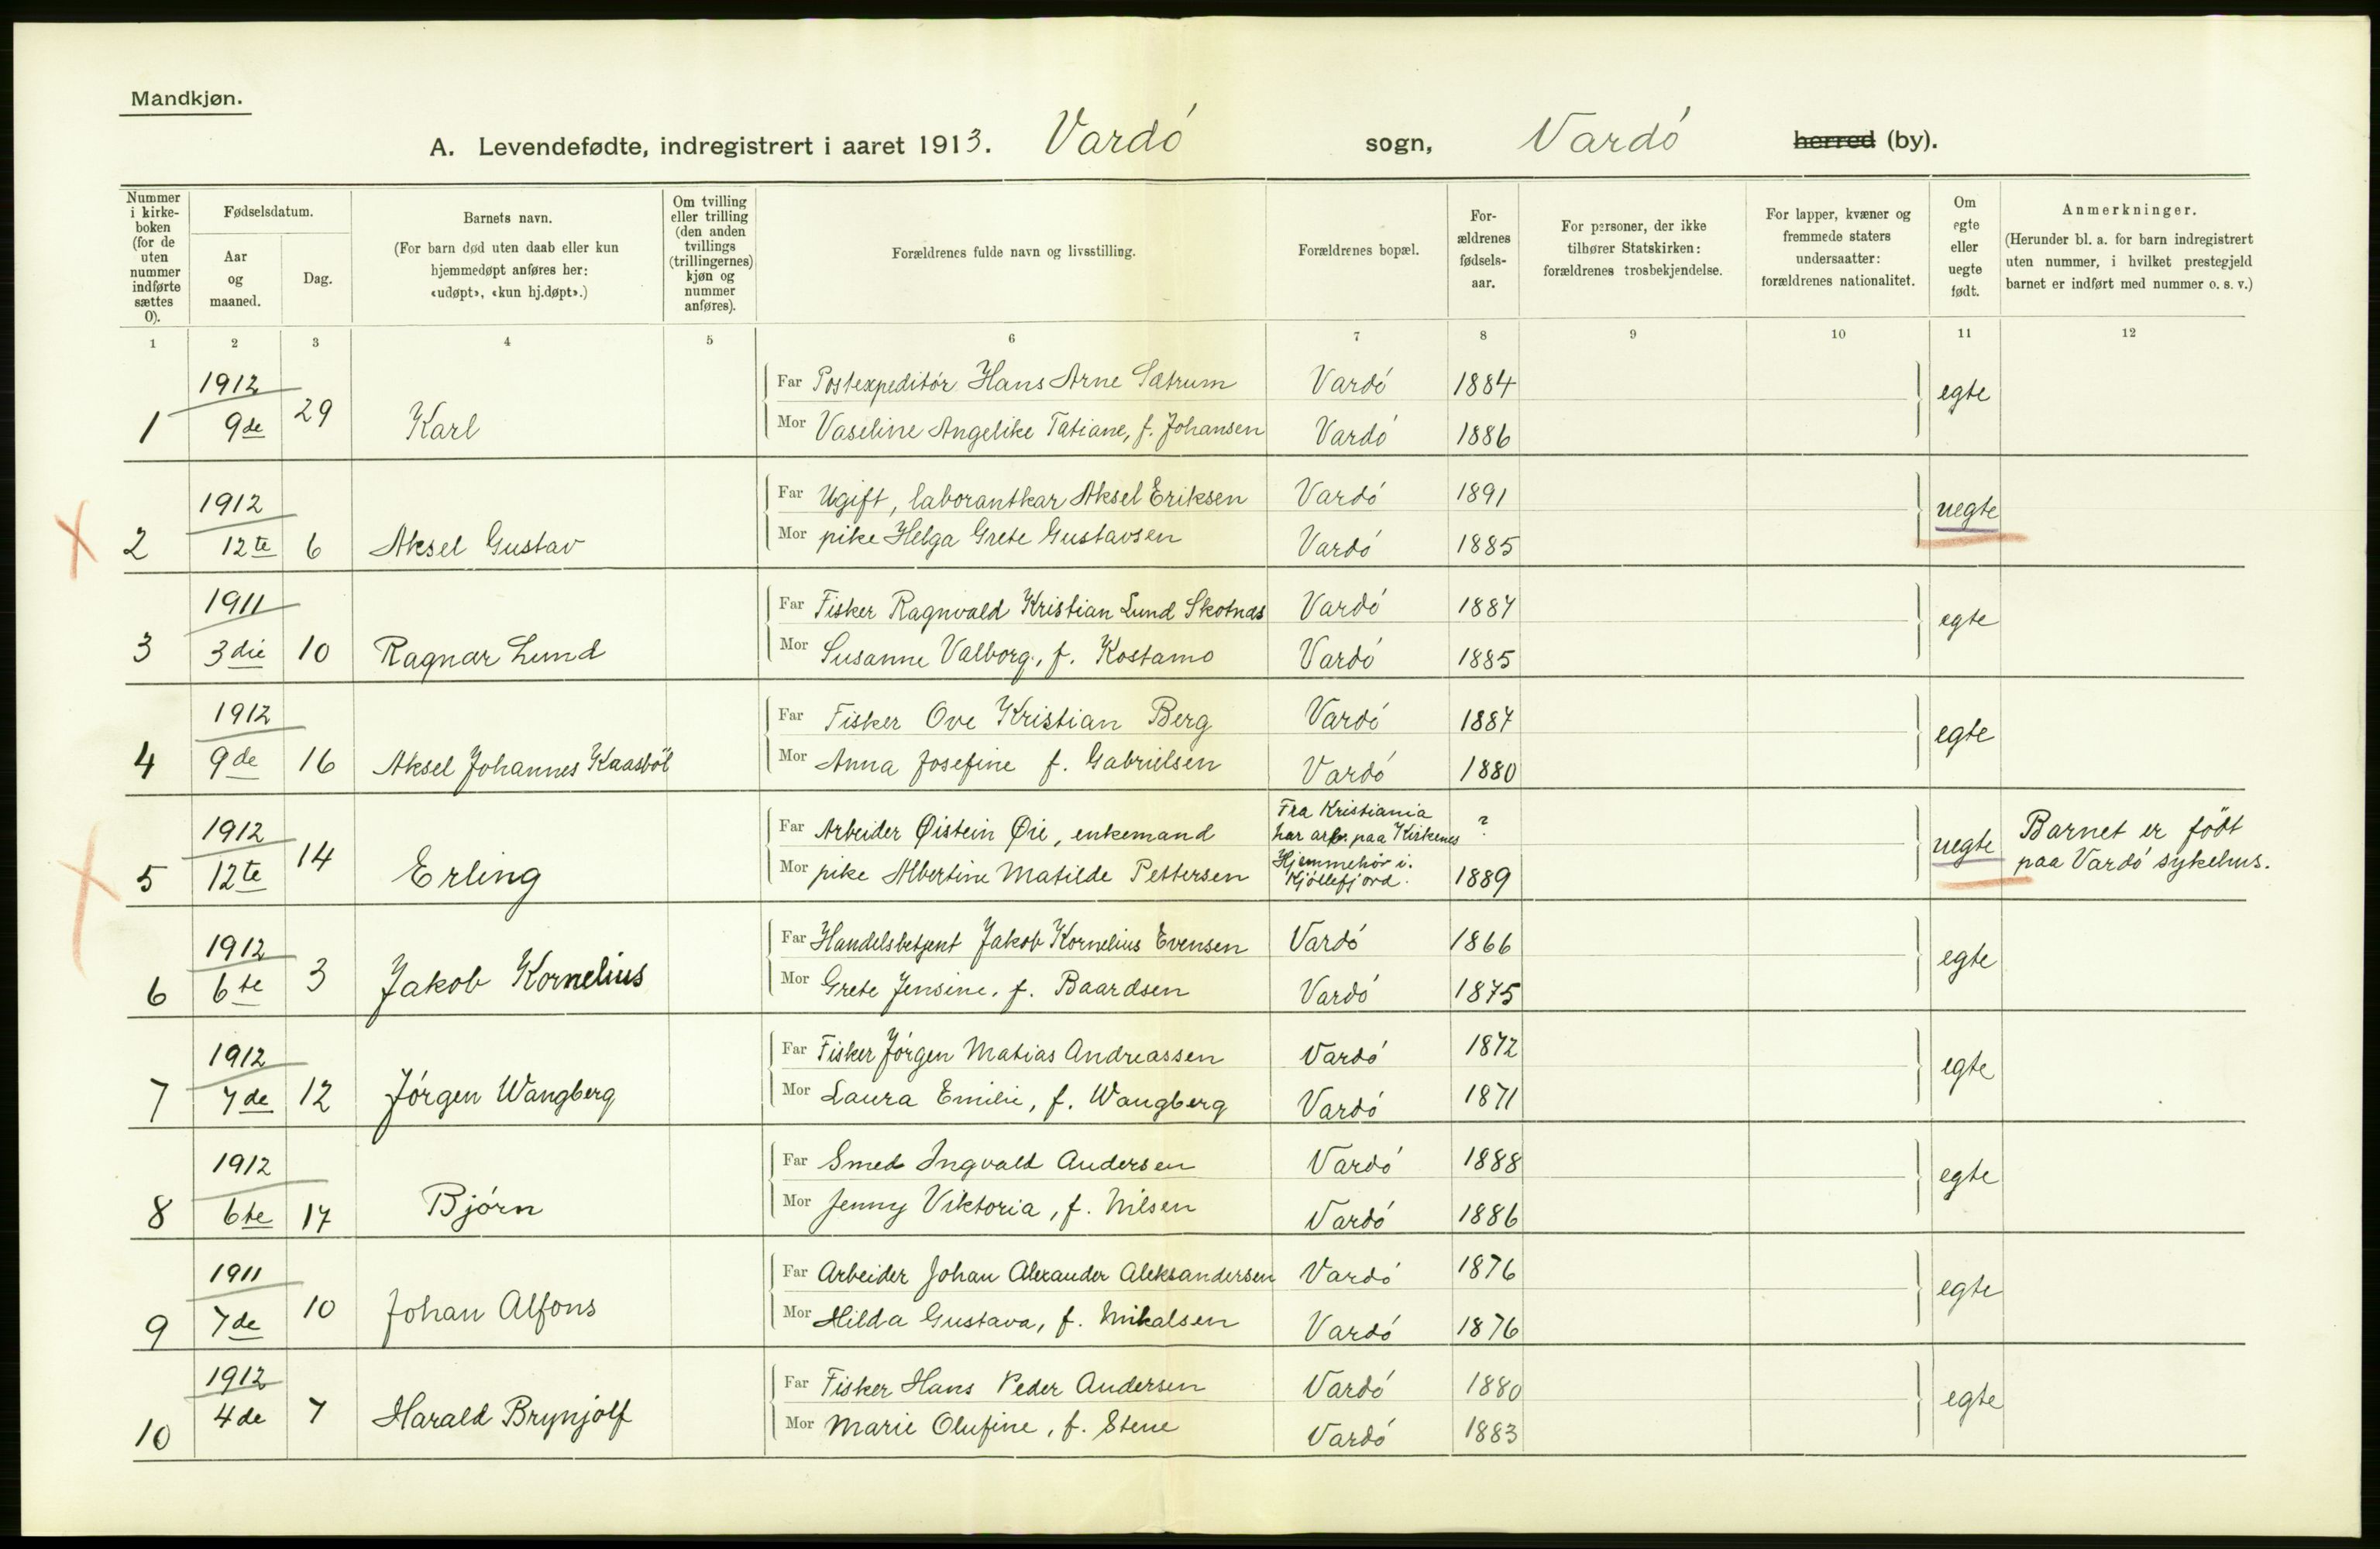 Mandkjøn.
A. Levendefødte, indregistrert i aaret 1913. Vardó sogn, Vardó herred (by).
Nummer i kirke-boken (for de uten nummer indførte sættes 0).
Fødselsdatum.
Aar og maaned.
Dag.
Barnets navn.
(For barn død uten daab eller kun hjemmedøpt anføres her: «udøpt», «kun hj.døpt».)
Om tvilling eller trilling (den anden tvillings (trillingernes) kjøn og nummer anføres).
Forældrenes fulde navn og livsstilling.
Forældrenes bopæl.
For-ældrenes fødsels-aar.
For personer, der ikke tilhører Statskirken: forældrenes trosbekjendelse.
For lapper, kvæner og fremmede staters undersaatter: forældrenes nationalitet.
Om egte eller uegte født.
Anmerkninger.
(Herunder bl. a. for barn indregistrert uten nummer, i hvilket prestegjeld barnet er indført med nummer o. s. v.)
1 2 3 4 5 6 7 8 9 10 11 12
1912
Far Postexpeditór Hans Arne Sætrum Vardó 1884 egte
1 9de 29 Karl
Mor Vaseline Angelike Tatiane, f. Johansen Vardó 1886
1912
Far Ugift, laborantkar Aksel Eriksen Vardó 1891 uegte
2 12te 6 Aksel Gustav
Mor pike Helga Grete Gustavsen Vardó 1885
1911
Far Fisker Ragnvald Kristian Lund Skotnæs Vardó 1887 egte
3 3die 10 Ragnar Lund
Mor Susanne Valborg, f. Kostamo Vardó 1885
1912
Far Fisker Ove Kristian Berg Vardó 1887 egte
4 9de 16 Aksel Johannes Kaasból
Mor Anna Josefine f. Gabrielsen Vardó 1880
1912
Far Arbeider Øistein Øie, enkemand Fra Kristiania har arb. paa Kirkenes ? uegte Barnet er fódt
5 12te 14 Erling
Mor pike Albertine Matilde Pettersen Hjemmehór i Kjóllefjord. 1889 paa Vardó sykehus.
1912
Far Handelsbetjent Jakob Kornelius Evensen Vardó 1866 egte
6 6te 3 Jakob Kornelius
Mor Grete Jensine, f. Baardsen Vardó 1875
1912
Far Fisker Jórgen Matias Andreassen Vardó 1872 egte
7 7de 12 Jórgen Wangberg
Mor Laura Emilie, f. Wangberg Vardó 1871
1912
Far Smed Ingvald Andersen Vardó 1888 egte
8 6te 17 Bjórn
Mor Jenny Viktoria, f. Nilsen Vardó 1886
1911
Far Arbeider Johan Alexander Aleksandersen Vardó 1876 egte
9 7de 10 Johan Alfons
Mor Hilda Gustava, f. Mikalsen Vardó 1876
1912
Far Fisker Hans Peder Andersen Vardó 1880 egte
10 4de 7 Harald Brynjolf
Mor Marie Olufine, f. Stene Vardó 1883